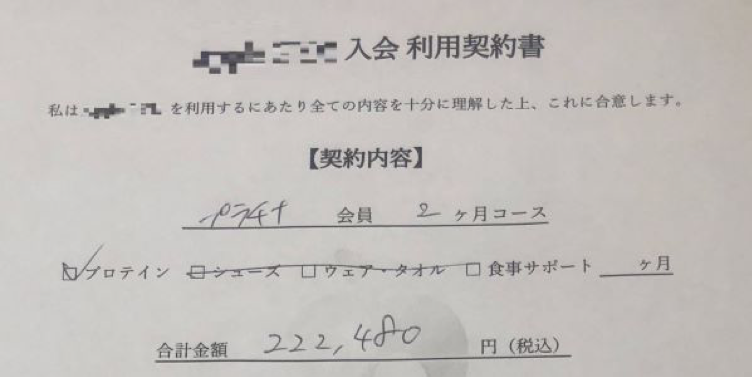 入会 利用契約書
私は を利用するにあたり全ての内容を十分に理解した上、これに合意します。
【契約内容】
プラチナ 会員 2 ヶ月コース
☑プロテイン □シューズ □ウェア・タオル □食事サポート ヶ月
合計金額 222,480 円（税込）